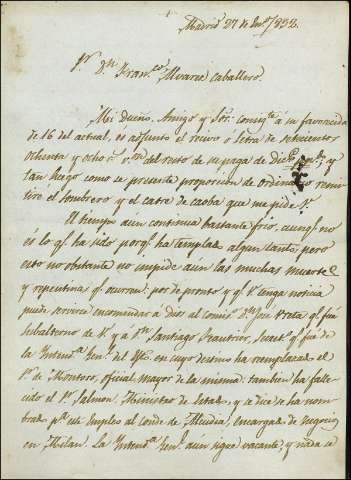 Madrid 27 de En.º 1832.
S.r D.n Fran.co Alvarez Caballero.
Mi Dueño, Amigo y S.or: consig.te á su favorecida
de 16 del actual, es adjunto el recivo ó letra de setecientos
ochenta y ocho r.s v.on del resto de su paga de Dic.e y
tan luego como se presente proporcion de ordinario remi-
tiré el sombrero y el catre de caoba que me pide V.
El tiempo aún continua bastante frio, aunq.e no
es lo q.e ha sido porq.e ha templado algun tanto, pero
esto no obstante no impide aún las muchas muertes
y repentinas q.e ocurren: por de pronto y p.a q.e V. tenga noticia
puede servirse encomendar á dios al comis.o D.n José q.e fué
subalterno de V. y á D.n Santiago secret.o q.e fué de
la Intend.a Gen.l del en cuyo destino ha remplazado el
S.r de Montoro, oficial mayor de la misma: tambien ha falle-
cido el S.r Salmon, Ministro de Estado, y se dice se ha nom-
brado p.a este Empleo al conde de Alcudia, encargado de negocios
en Milan. La Intend.a Gen.l aún sigue vacante, y nada se